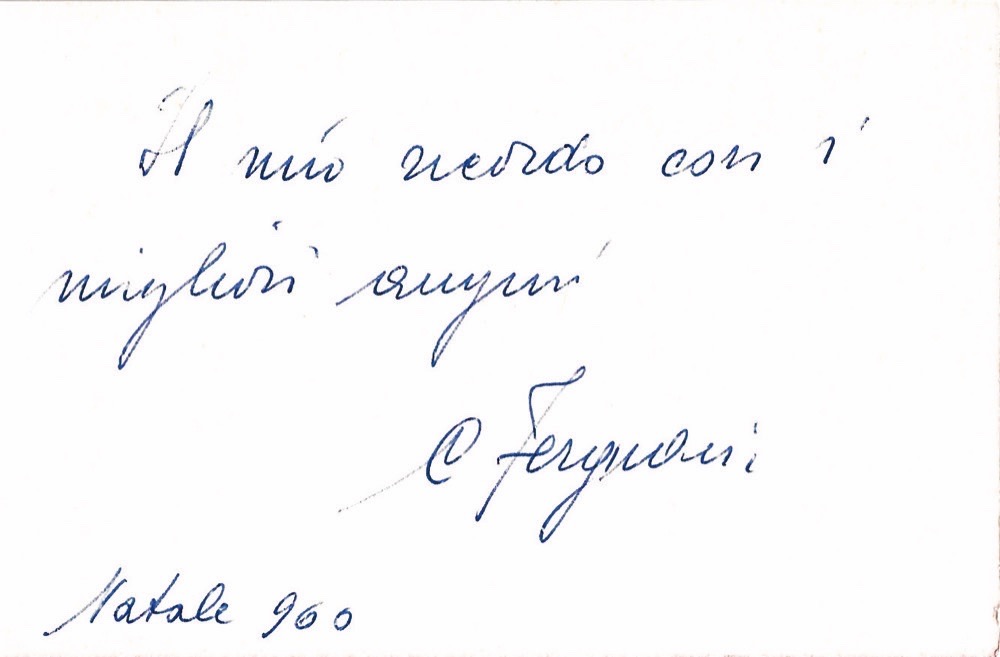 Il mio ricordo con i
migliori auguri
C Fergnani
Natale 960